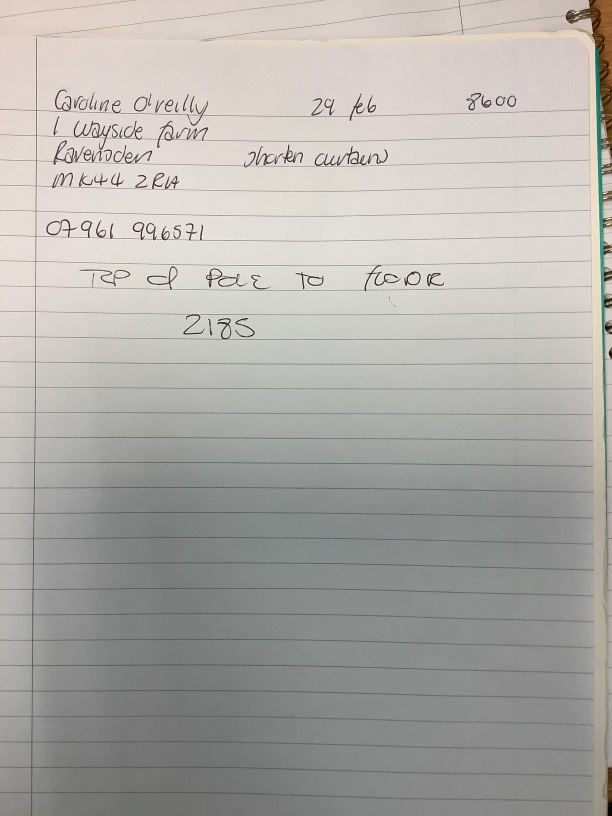 Caroline O'reilly 29 feb 8600
1 Wayside farm
Ravensden shorten curtains
MK44 2RA
07961 996571
TOP of POLE TO flOOR
2185